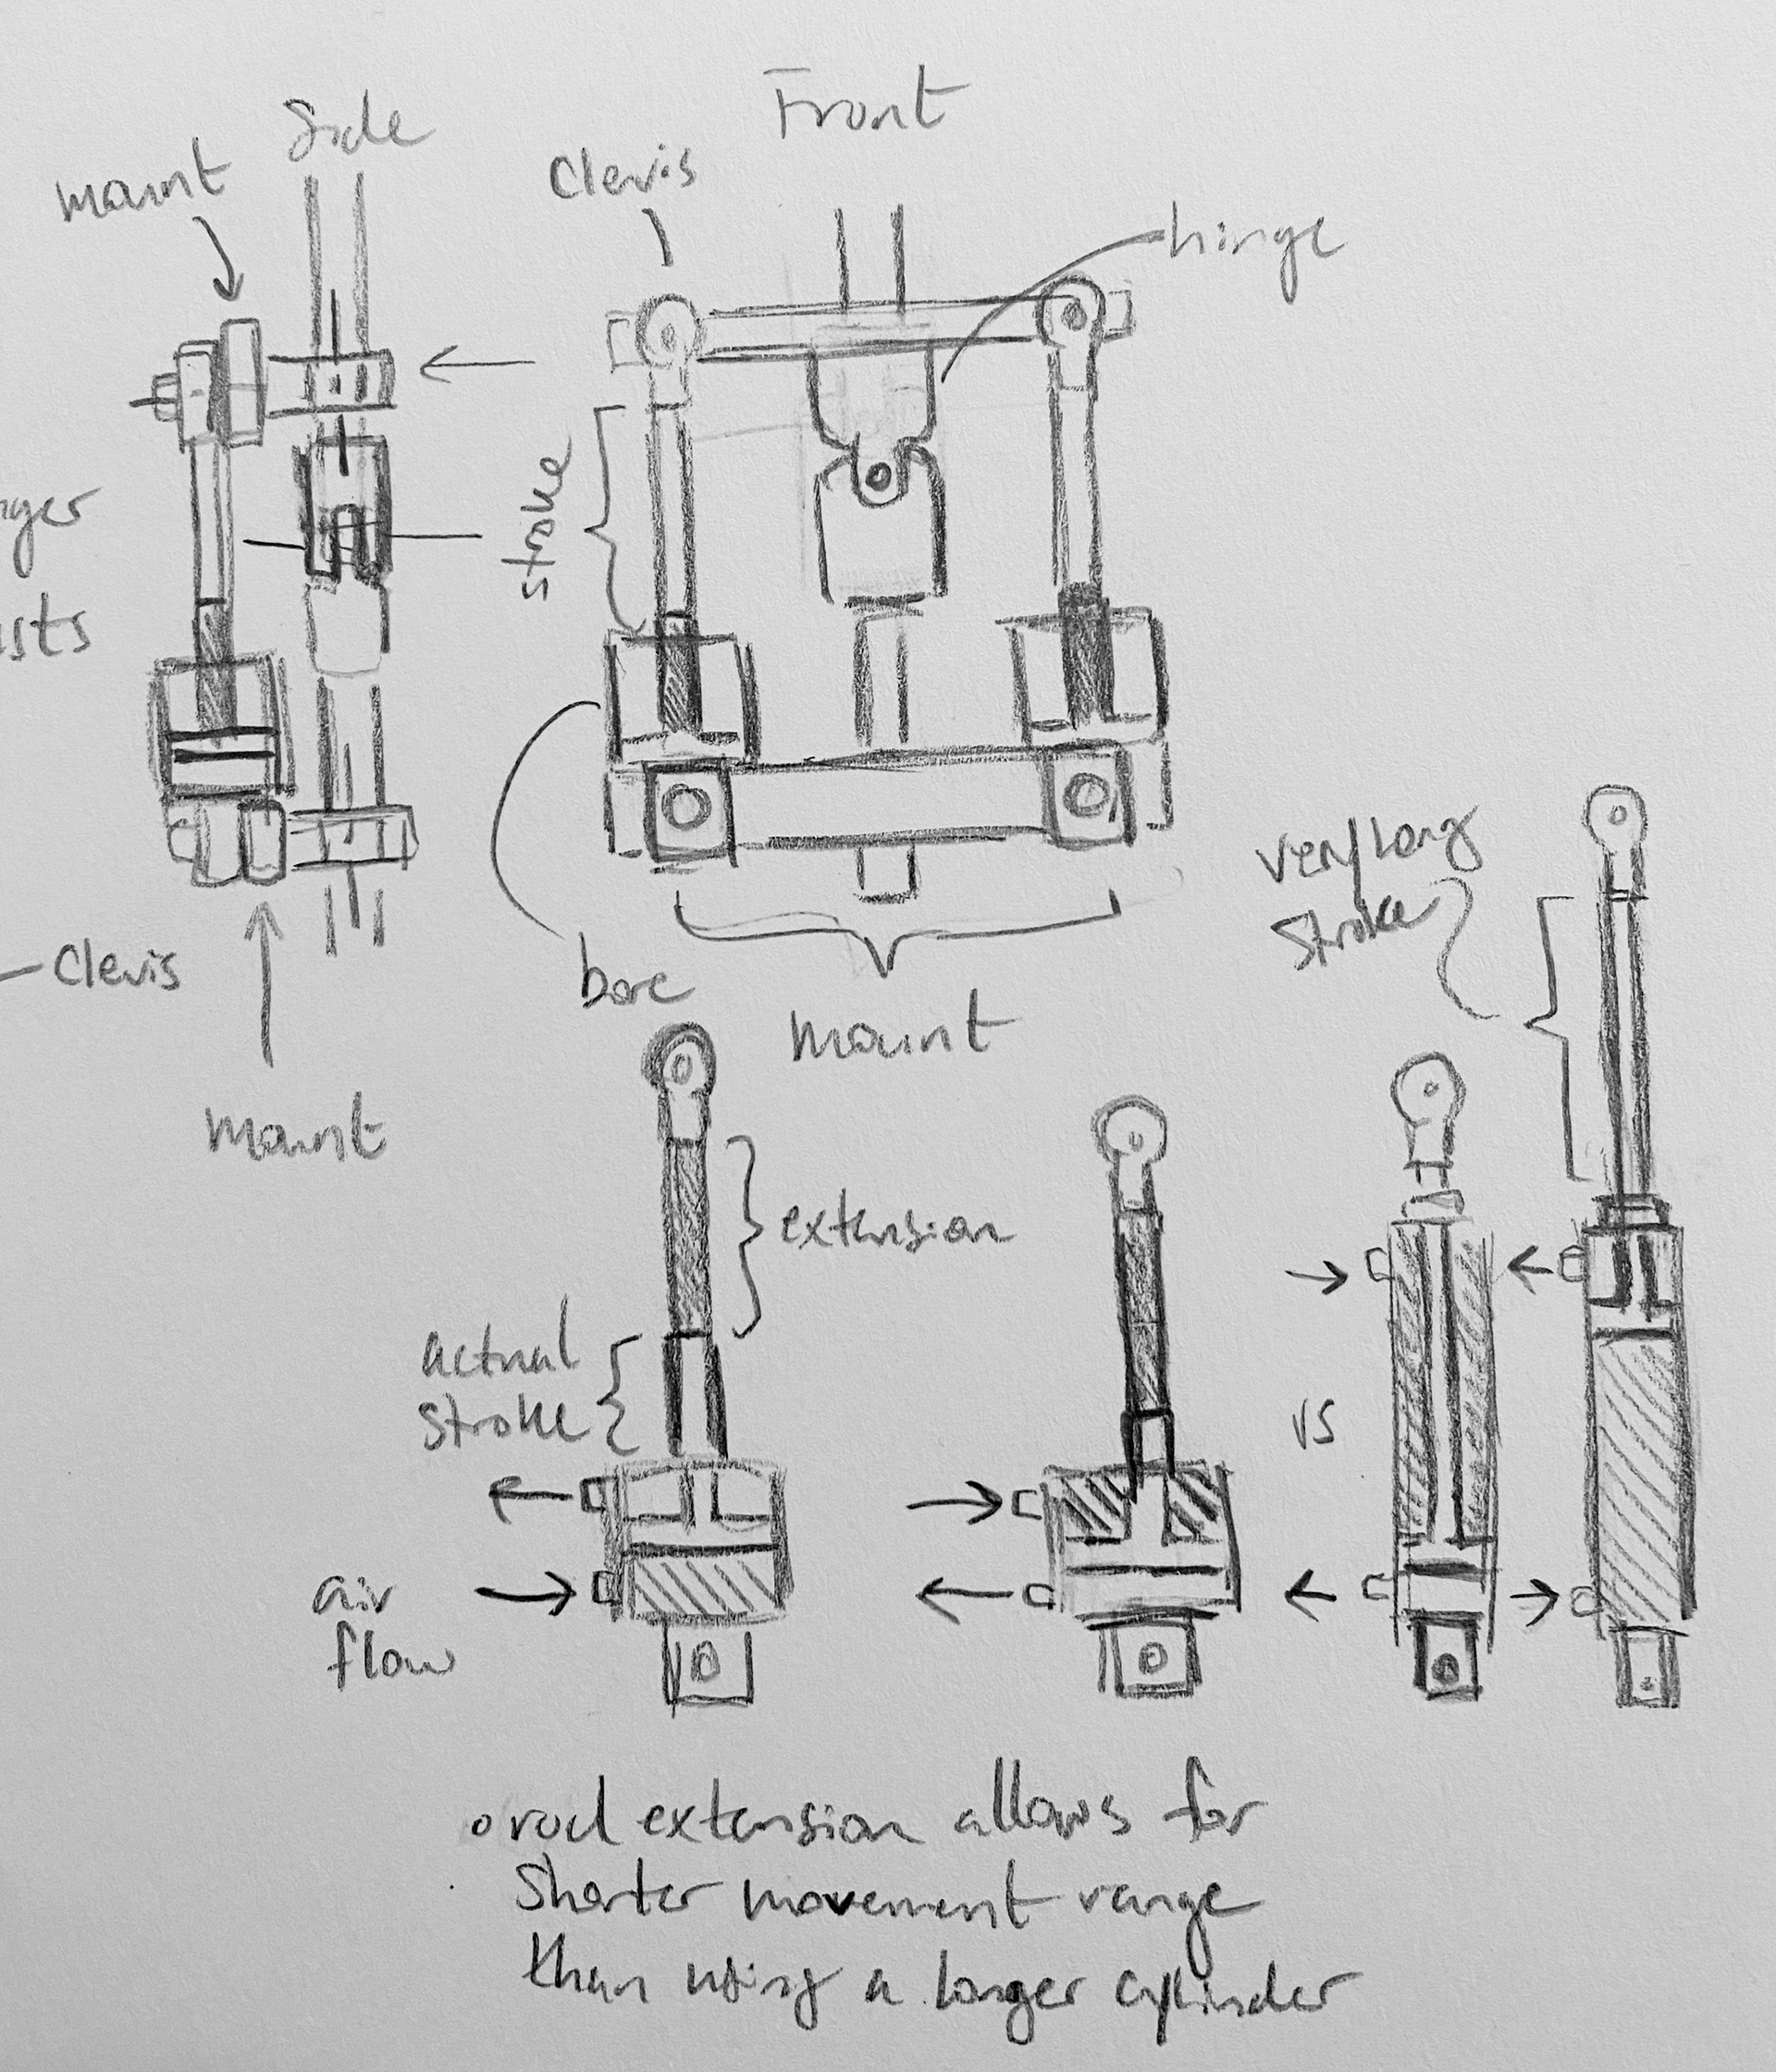 Side
Front
mount
Clevis
hinge
stroke
Clevis
bore
mount
mount
very long
stroke
extension
actual
stroke
vs
air
flow
o rod extension allows for
shorter movement range
than using a longer cylinder